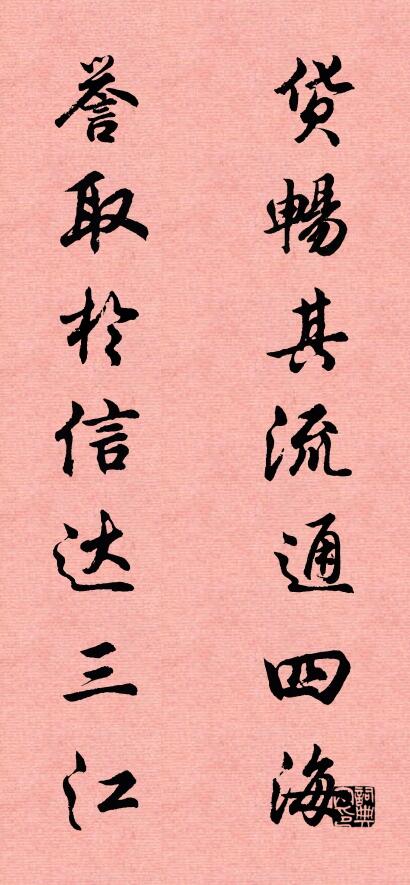 货畅其流通四海
誉取於信达三江